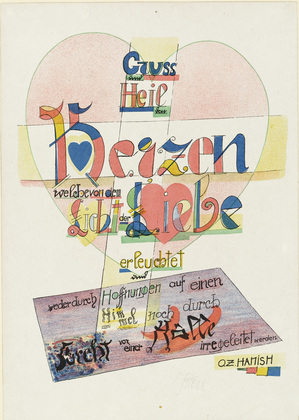 Gruss
und
Heil
den
Herzen
welche von dem
Licht der Liebe
erleuchtet
und
weder durch Hoffnungen auf einen
Himmel noch durch
Furcht vor einer Hölle
irregeleitet werden
OZ. HANISH